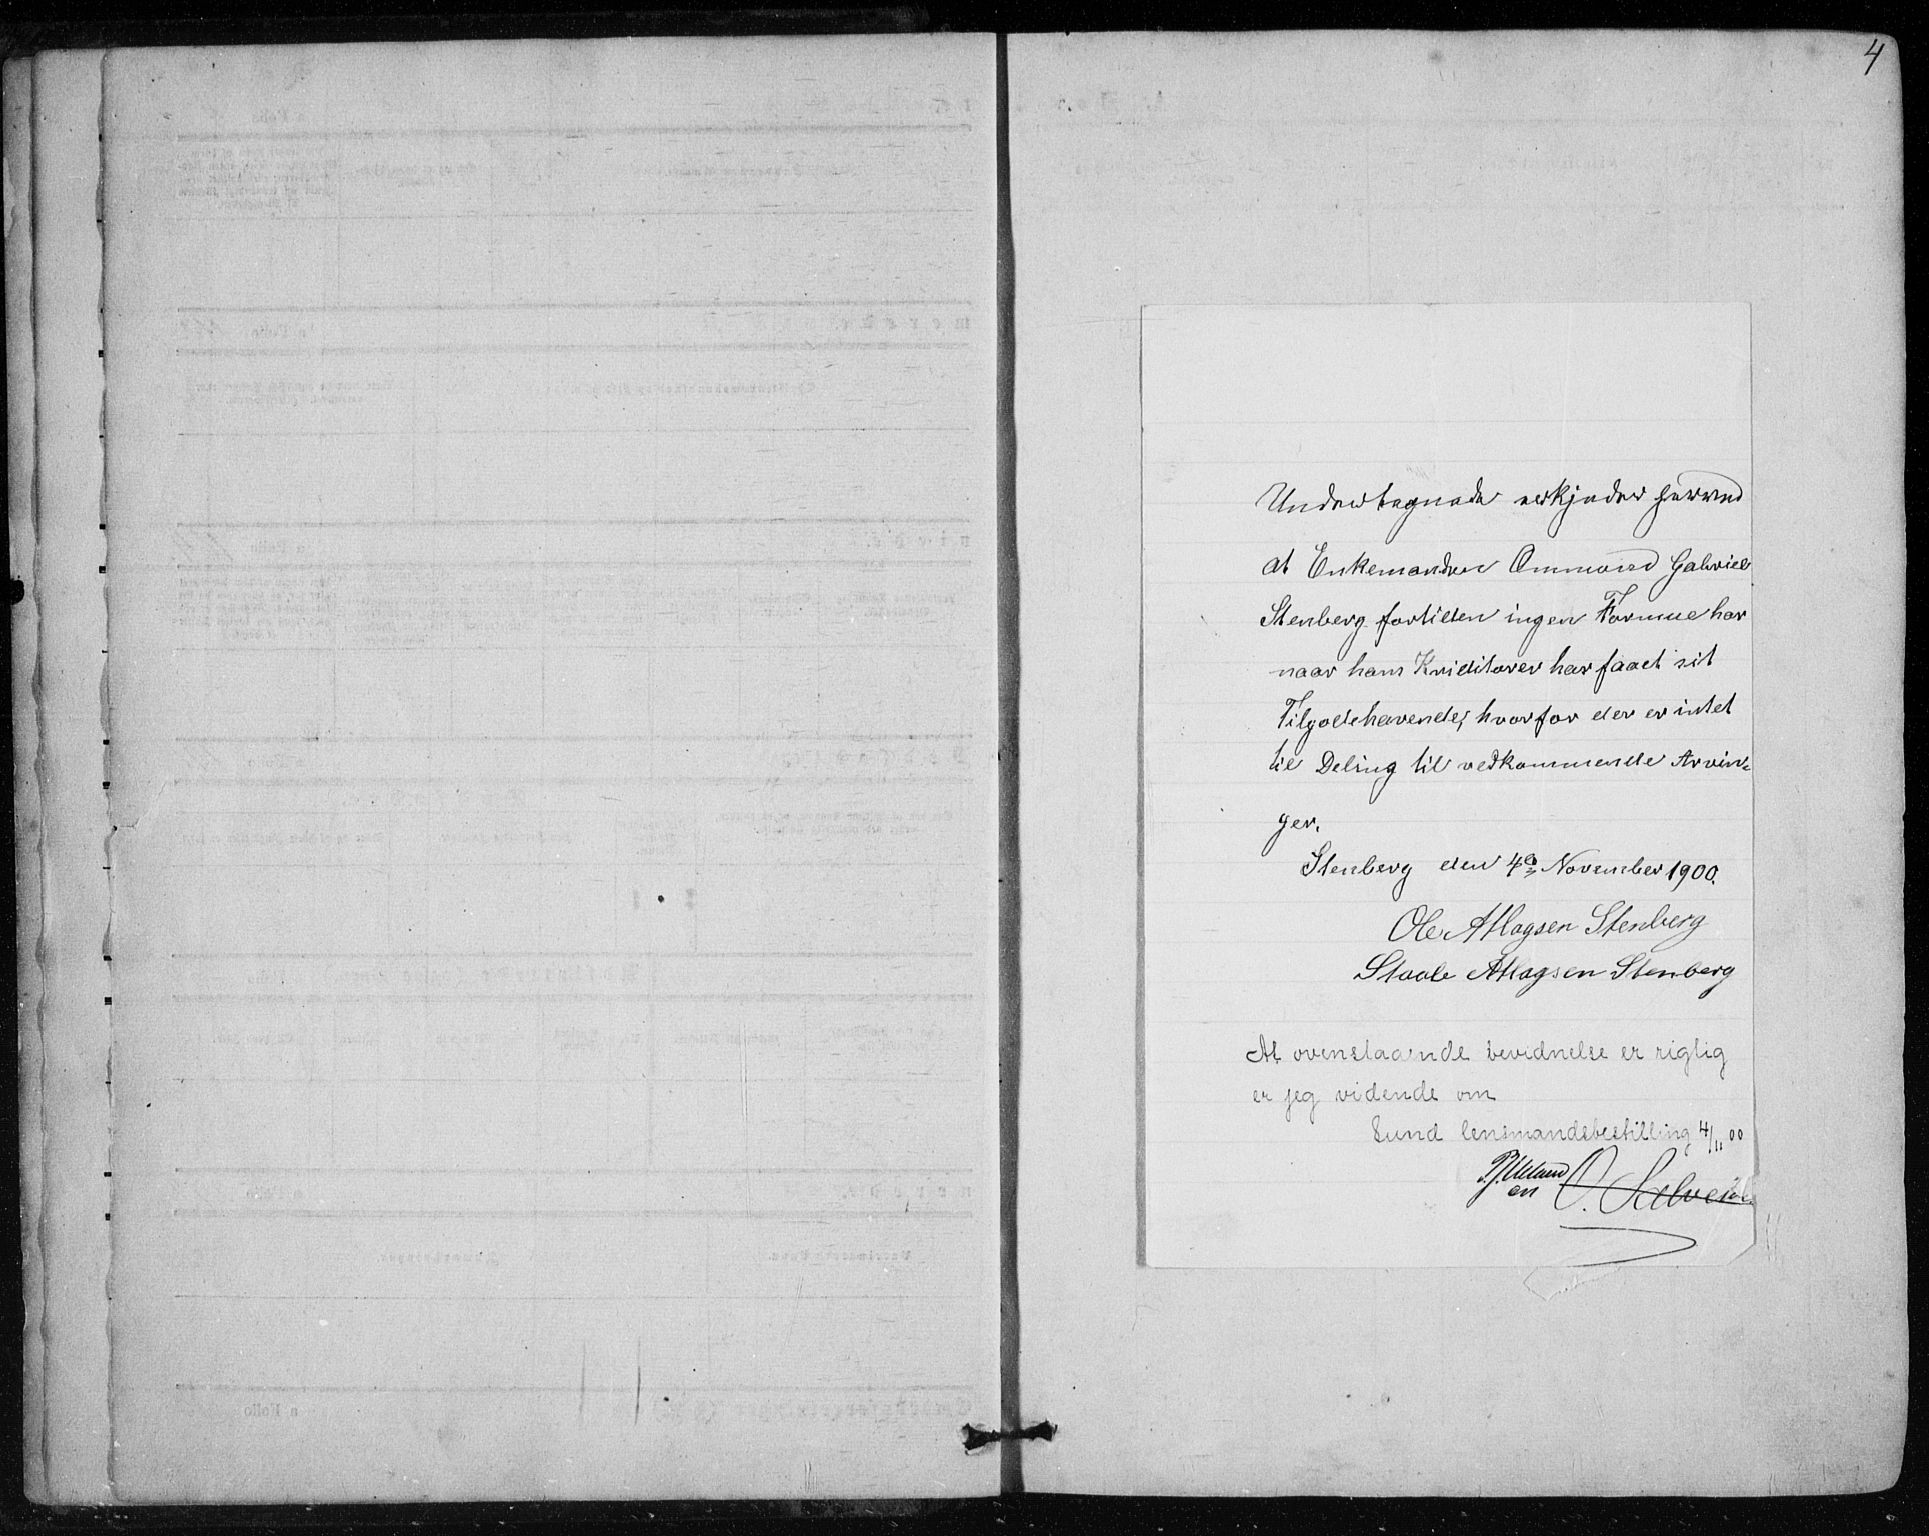 4
Undertegnede erkjender herved
at Enkemanden Ommund Gabriels
Stenberg fortiden ingen Formue har
naar hans Kriditorer har faaet sit
Tilgodehavende, hvorfor der er intet
til Deling til vedkommende Arvin-
ger.
Stenberg den 4de November 1900.
Ole Atlagsen Stenberg
Staale Atlagsen Stenberg
At ovenstaaende bevidnelse er rigtig
er jeg vidende om
Lund lensmandsbestilling 4/11 00
O.